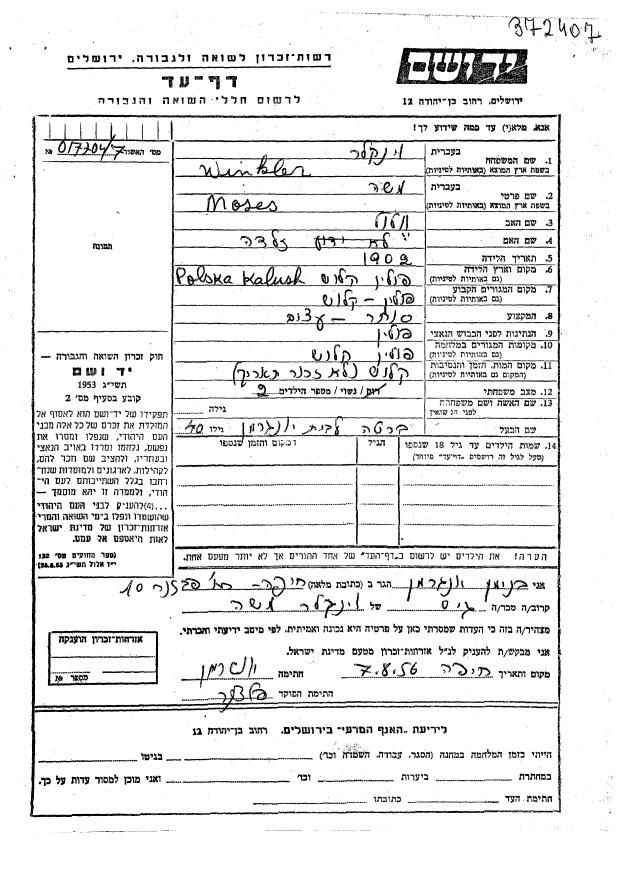 372407
רשות-זכרון לשואה ולגבורה, ירושלים
דף-עד
לרשום חללי השואה והגבורה
יד ושם
ירושלים, רחוב בן-יהודה 12
אנא, מלא(י) עד כמה שידוע לך!
מס' האשור № 0/7204/7
תמונה
1. שם המשפחה בעברית וינקלר
בשפת ארץ המוצא (באותיות לטיניות) Winkler
2. שם פרטי בעברית משה
בשפת ארץ המוצא (באותיות לטיניות) Moses
3. שם האב וולול
4. שם האם זלדה
5. תאריך הלידה 1902
6. מקום וארץ הלידה (גם באותיות לטיניות) פולין קלוש Polska Kalush
7. מקום המגורים הקבוע (גם באותיות לטיניות) פולין – קלוש
8. המקצוע סוחר – עצים
9. הנתינות לפני הכבוש הנאצי פולין
10. מקומות המגורים במלחמה (גם באותיות לטיניות) פולין קלוש
11. מקום המות, הזמן והנסיבות (המקום גם באותיות לטיניות) קלוש (לא זכור תאריך)
12. מצב משפחתי רווק / נשוי / מספר הילדים 2
13. שם האשה ושם משפחתה לפני הנשואין ברטה לבית יונגרמן גילה 40
שם הבעל גילו
14. שמות הילדים עד גיל 18 שנספו (מעל לגיל זה רושמים "דף-עד" מיוחד)
הגיל
המקום והזמן שנספו
חוק זכרון השואה והגבורה —
יד ושם
תשי"ג 1953
קובע בסעיף מס' 2
תפקידו של יד-ושם הוא לאסוף אל
המולדת את זכרם של כל אלה מבני
העם היהודי, שנפלו ומסרו את
נפשם, נלחמו ומרדו באויב הנאצי
ובעוזריו, ולהציב שם וזכר להם,
לקהילות, לארגונים ולמוסדות שנח־
רבו בגלל השתייכותם לעם היהו־
די, ולמטרה זו יהא מוסמך –
...(4) להעניק לבני העם היהודי
שהושמדו ונפלו בימי השואה והמרי
אזרחות-זכרון של מדינת ישראל
לאות היאספם אל עמם.
(ספר החוקים מס' 132
י"ז אלול תשי"ג 28.8.53)
הערה! את הילדים יש לרשום ב"דף-העד" של אחד ההורים אך לא יותר מפעם אחת.
אני בנימין יונגרמן הגר ב (כתובת מלאה) חיפה
קרוב/ה מכר/ה גיס של וינקלר משה
מצהיר/ה בזה כי העדות שמסרתי כאן על פרטיה היא נכונה ואמיתית, לפי מיטב ידיעתי והכרתי.
אני מבקש/ת להעניק לנ"ל אזרחות-זכרון מטעם מדינת ישראל.
מקום ותאריך חיפה 7.8.56 חתימה יונגרמן
חתימת הפוקד
אזרחות-זכרון הוענקה
מספר №
לידיעת "האגף המדעי" בירושלים, רחוב בן-יהודה 12
הייתי בזמן המלחמה במחנה (הסגר, עבודה, השמדה וכו') בגיטו
במחתרת ביערות וכו' ואני מוכן למסור עדות על כך.
חתימת העד כתובתו